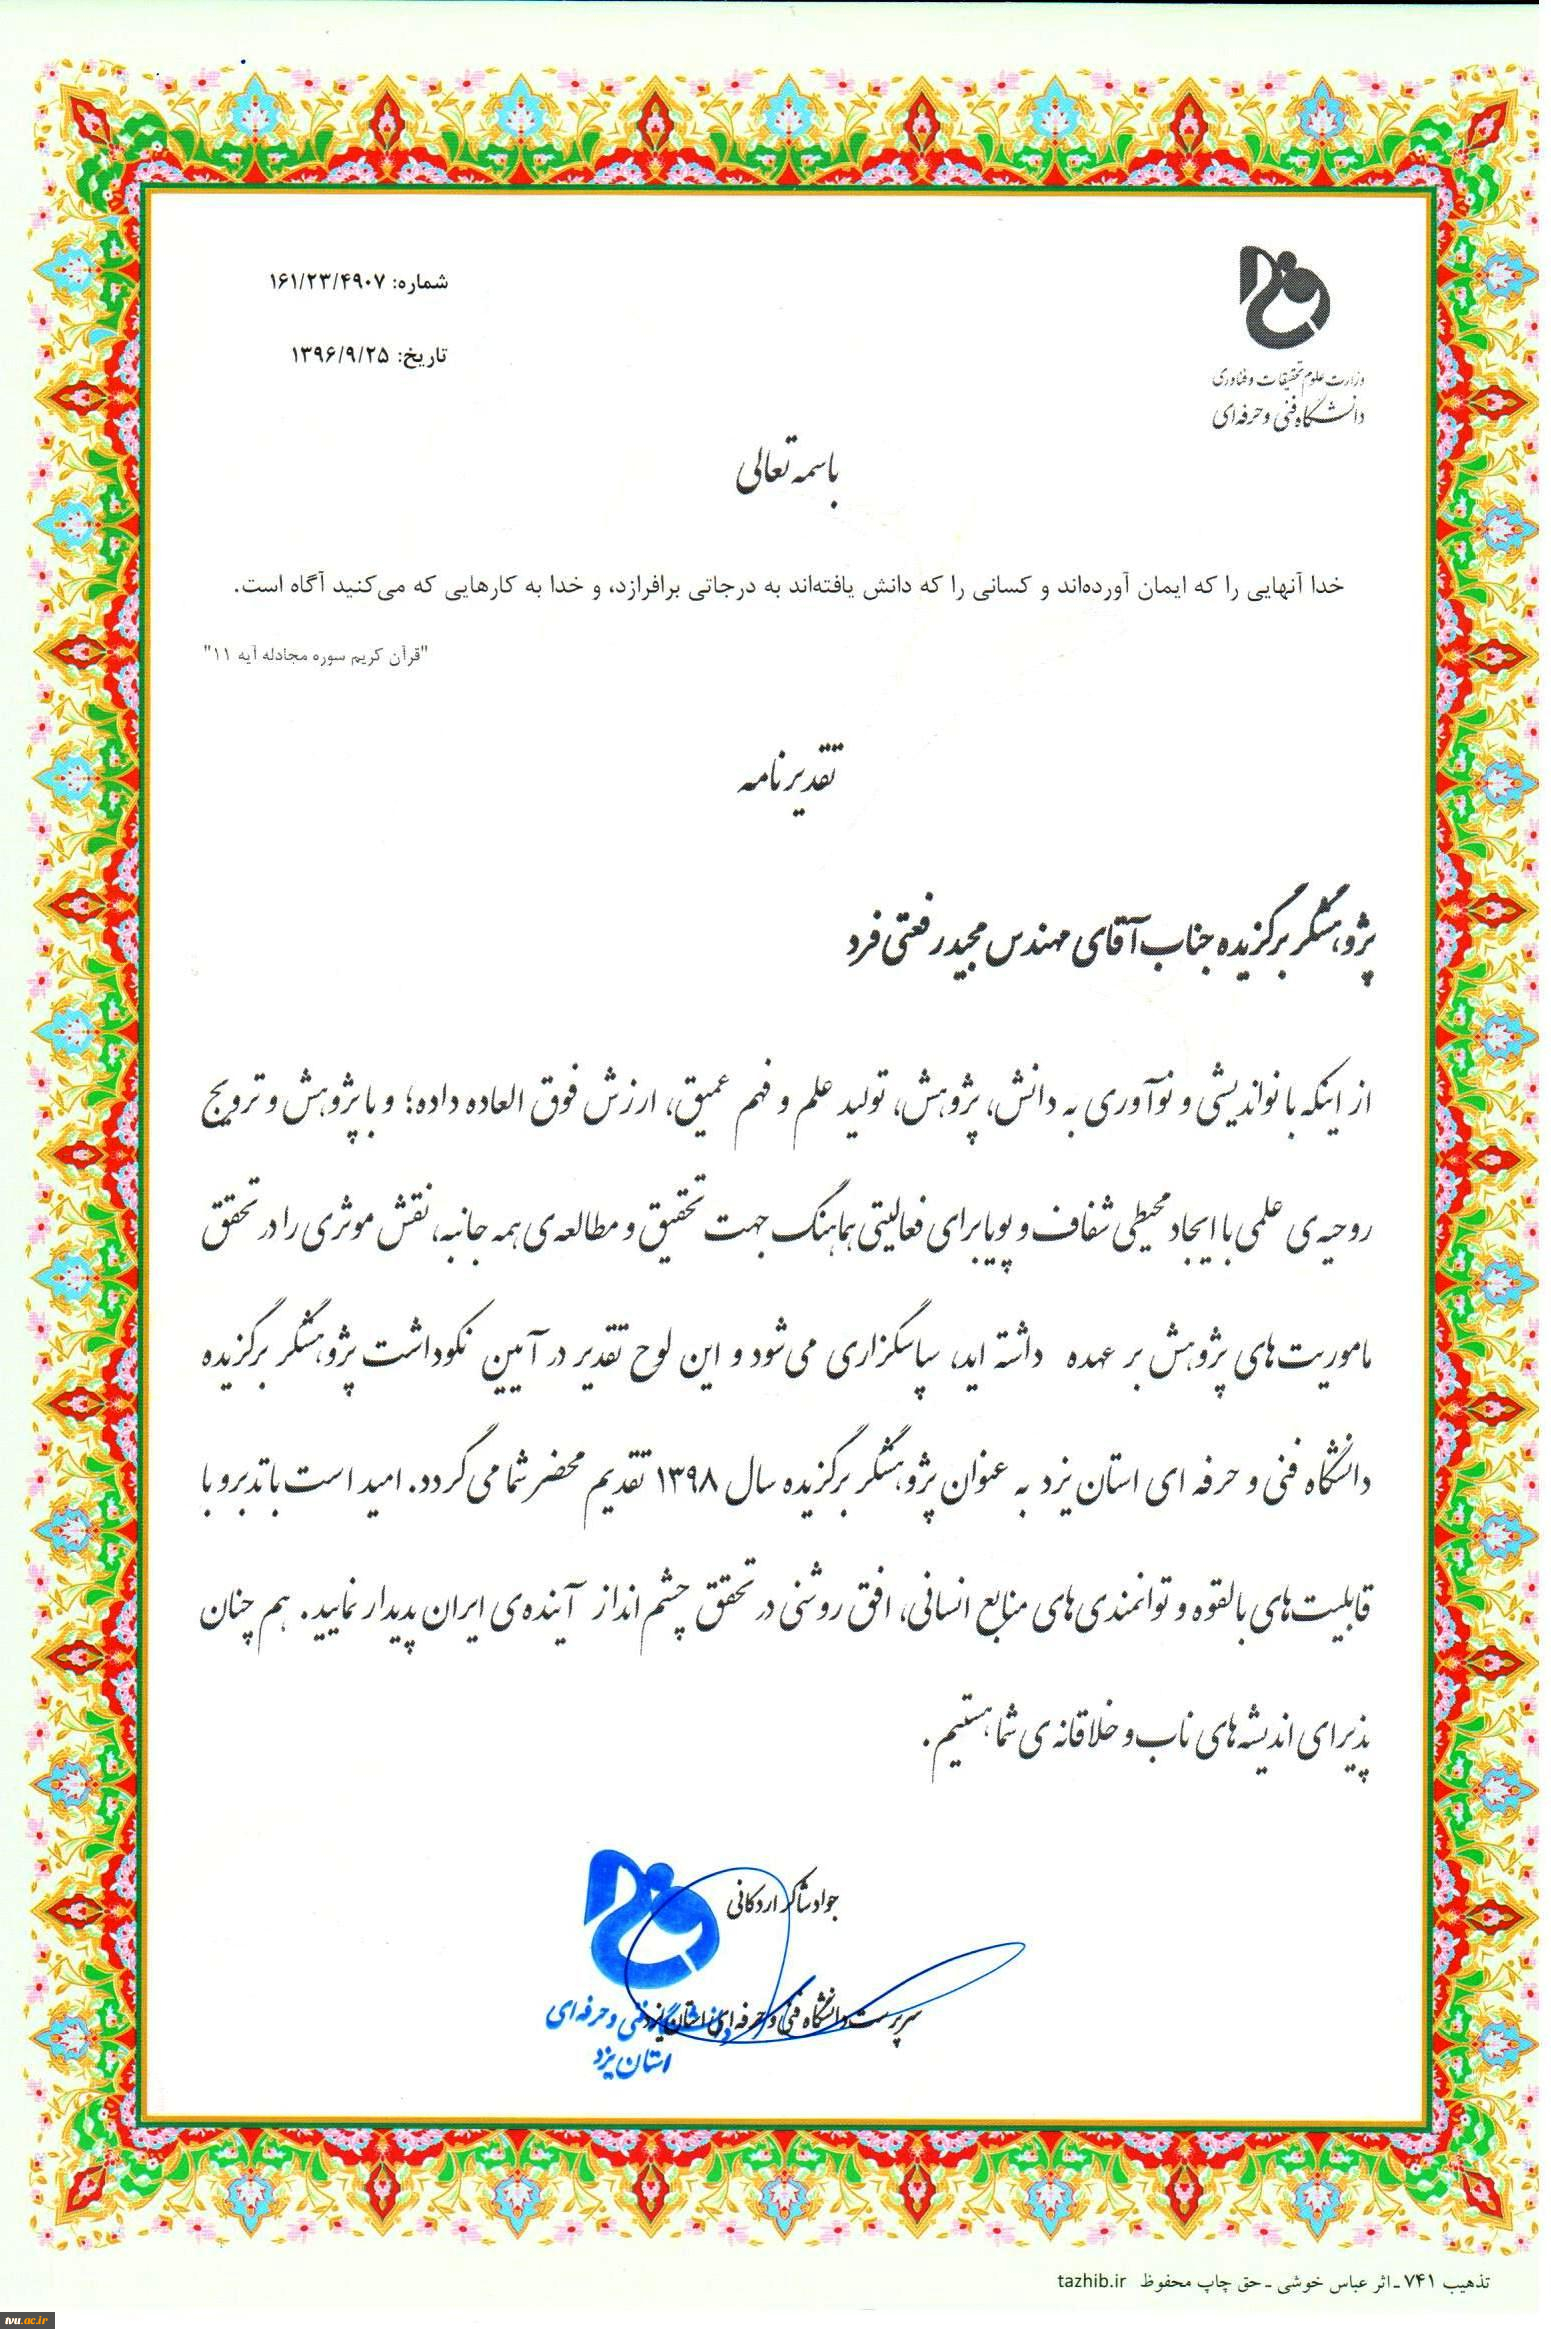 شماره: ۱۶۱/۲۳/۴۹۰۷
تاریخ: ۱۳۹۶/۹/۲۵
وزارت علوم تحقیقات و فناوری
دانشگاه فنی و حرفه‌ای
باسمه تعالی
خدا آنهایی را که ایمان آورده‌اند و کسانی را که دانش یافته‌اند به درجاتی برافرازد، و خدا به کارهایی که می‌کنید آگاه است.
"قرآن کریم سوره مجادله آیه ۱۱"
تقدیرنامه
پژوهشگر برگزیده جناب آقای مهندس مجید رفعتی فرد
از اینکه با نواندیشی و نوآوری به دانش، پژوهش، تولید علم و فهم عمیق، ارزش فوق العاده داده؛ و با پژوهش و ترویج
روحیه‌ی علمی با ایجاد محیطی شفاف و پویا برای فعالیتی هماهنگ جهت تحقیق و مطالعه‌ی همه جانبه، نقش موثری را در تحقق
ماموریت‌های پژوهش بر عهده داشته اید، سپاسگزاری می‌شود و این لوح تقدیر در آیین نکوداشت پژوهشگر برگزیده
دانشگاه فنی و حرفه ای استان یزد به عنوان پژوهشگر برگزیده سال ۱۳۹۸ تقدیم محضر شما می گردد. امید است با تدبر و با
قابلیت‌های بالقوه و توانمندی‌های منابع انسانی، افق روشنی در تحقق چشم انداز آینده‌ی ایران پدیدار نمایید. هم چنان
پذیرای اندیشه‌های ناب و خلاقانه‌ی شما هستیم.
جواد شاکر اردکانی
سرپرست دانشگاه فنی و حرفه‌ای استان یزد
دانشگاه فنی و حرفه‌ای
استان یزد
تذهیب ۷۴۱ ـ اثر عباس خوشی ـ حق چاپ محفوظ tazhib.ir
tvu.ac.ir